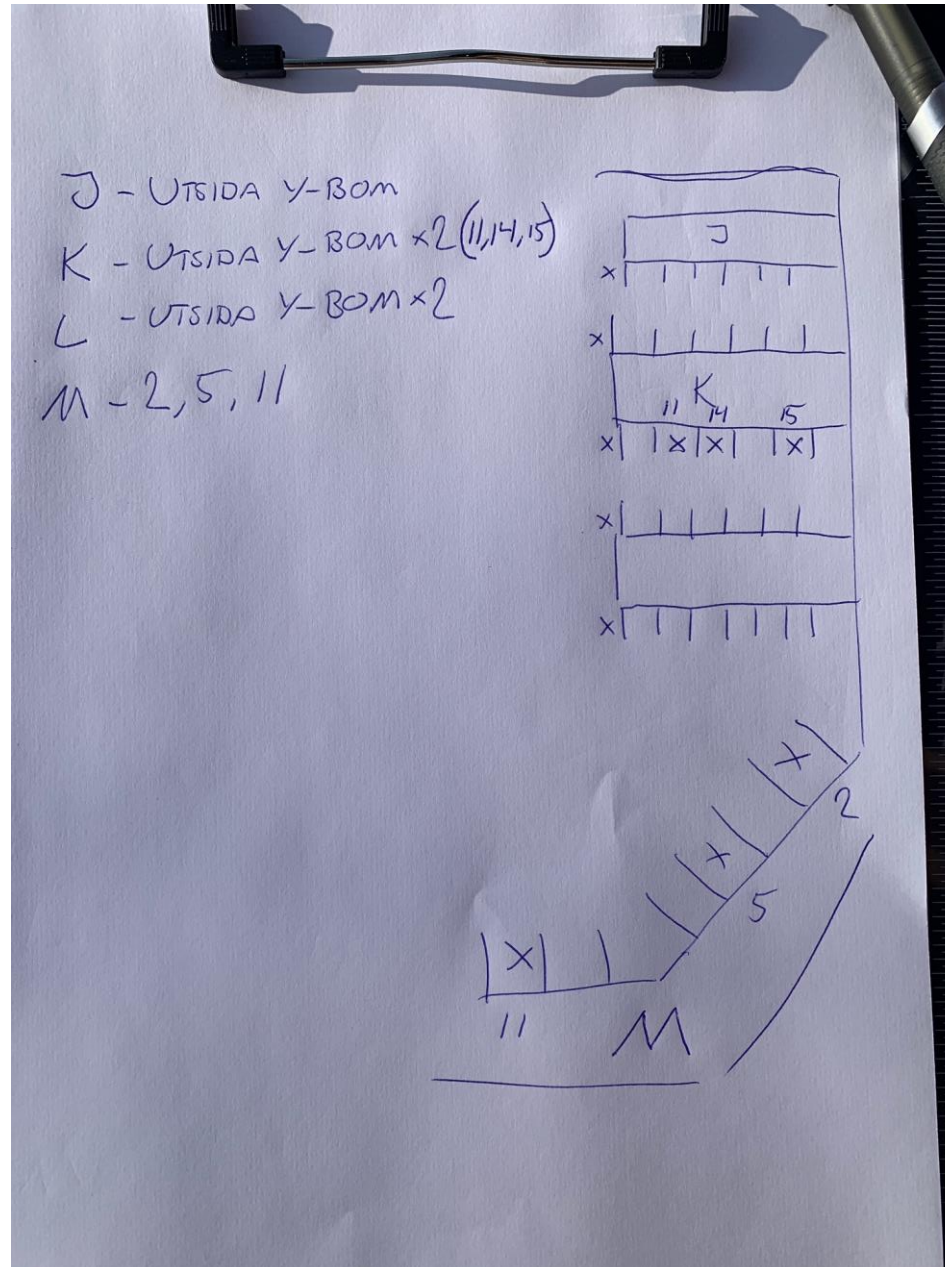 J - UTSIDA Y-BOM
K - UTSIDA Y-BOM x2 (11,14,15)
L - UTSIDA Y-BOM x2
M - 2, 5, 11
J
x
x
K
11 14 15
x x x x
x
x
x
2
x
5
x
11 M